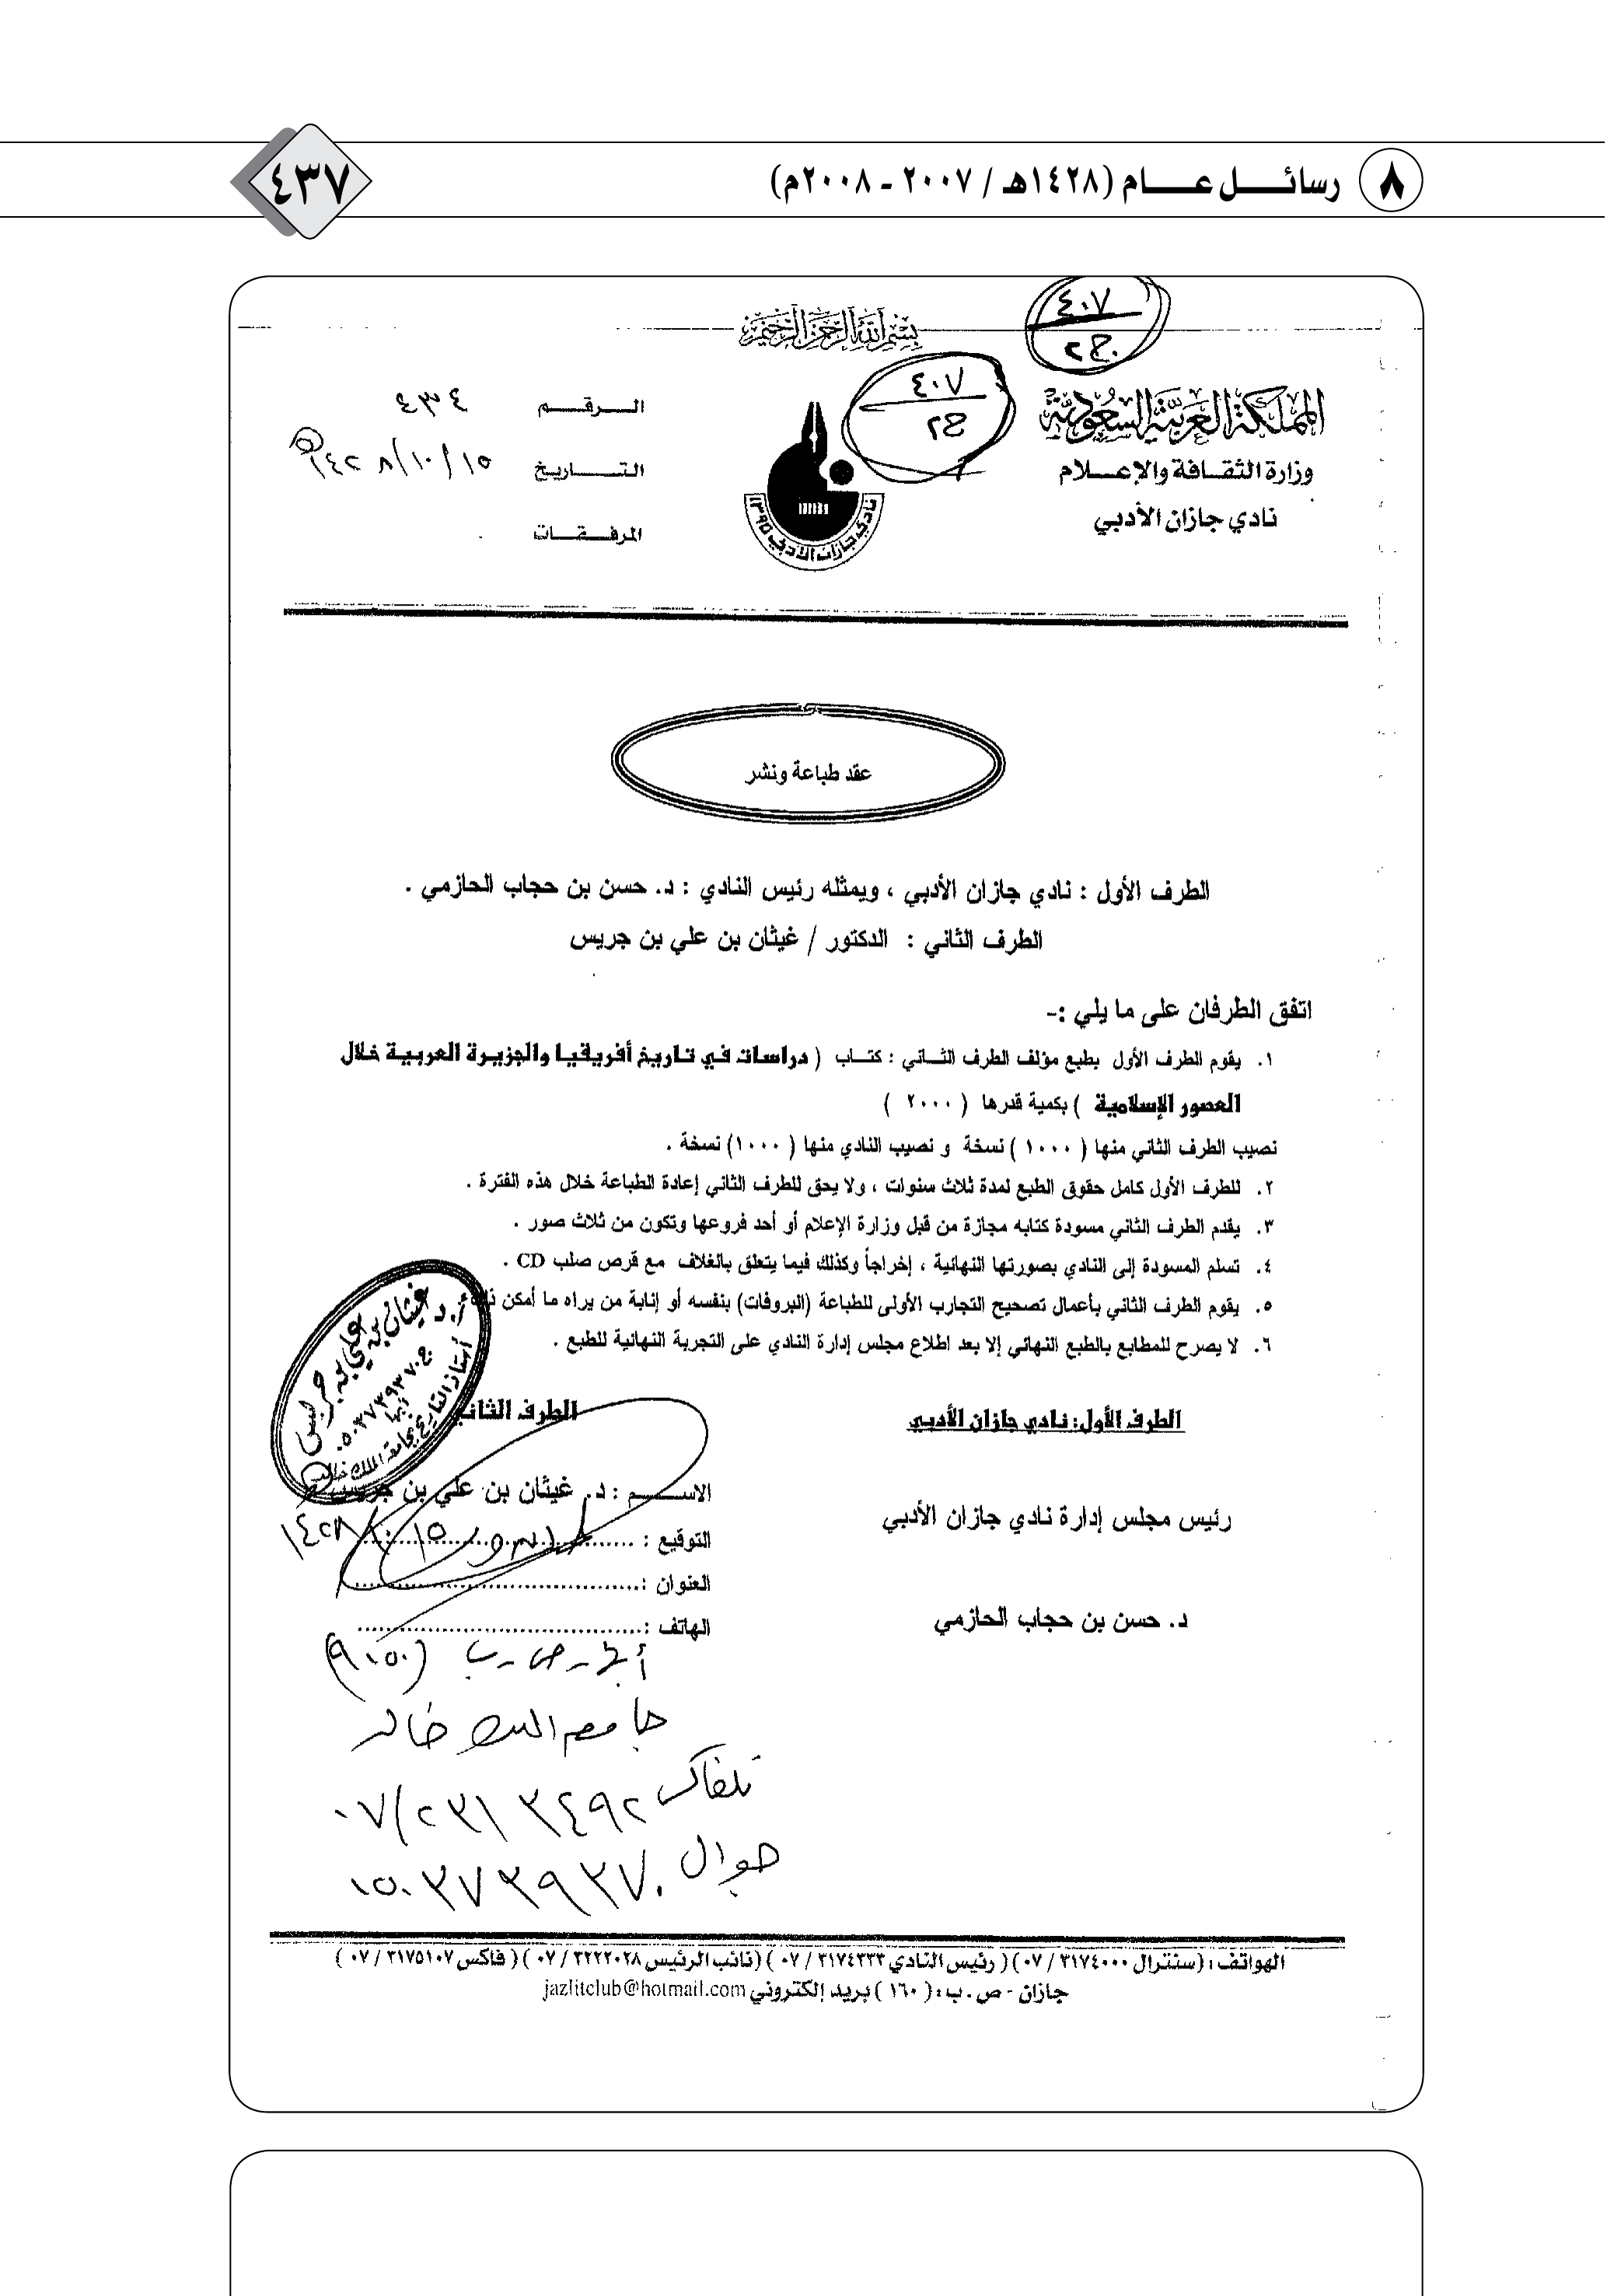 ٨ رسائــل عــام (١٤٢٨هـ / ٢٠٠٧ - ٢٠٠٨م)
٤٣٧
بسم الله الرحمن الرحيم
٤٠٧
ج٢
٤٠٧
ج٢
المملكة العربية السعودية
وزارة الثقافة والإعلام
نادي جازان الأدبي
نادي جازان الأدبي ١٣٩٥
الرقم ٤٣٤
التاريخ ١٥/١٠/١٤٢٨هـ
المرفقات
عقد طباعة ونشر
الطرف الأول : نادي جازان الأدبي ، ويمثله رئيس النادي : د. حسن بن حجاب الحازمي .
الطرف الثاني : الدكتور / غيثان بن علي بن جريس
اتفق الطرفان على ما يلي :-
١. يقوم الطرف الأول بطبع مؤلف الطرف الثاني : كتاب ( دراسات في تاريخ أفريقيا والجزيرة العربية خلال
العصور الإسلامية ) بكمية قدرها ( ٢٠٠٠ )
نصيب الطرف الثاني منها ( ١٠٠٠ ) نسخة و نصيب النادي منها ( ١٠٠٠ ) نسخة .
٢. للطرف الأول كامل حقوق الطبع لمدة ثلاث سنوات ، ولا يحق للطرف الثاني إعادة الطباعة خلال هذه الفترة .
٣. يقدم الطرف الثاني مسودة كتابه مجازة من قبل وزارة الإعلام أو أحد فروعها وتكون من ثلاث صور .
٤. تسلم المسودة إلى النادي بصورتها النهائية ، إخراجاً وكذلك فيما يتعلق بالغلاف مع قرص صلب CD .
٥. يقوم الطرف الثاني بأعمال تصحيح التجارب الأولى للطباعة (البروفات) بنفسه أو إنابة من يراه ما أمكن ذلك
٦. لا يصرح للمطابع بالطبع النهائي إلا بعد اطلاع مجلس إدارة النادي على التجربة النهائية للطبع .
أ.د. غيثان بن علي بن جريس
ج ٠٥٠٣٧٣٩٣٧٠
أبها
أستاذ التاريخ بجامعة الملك خالد
الطرف الأول: نادي جازان الأدبي
رئيس مجلس إدارة نادي جازان الأدبي
د. حسن بن حجاب الحازمي
الطرف الثاني
الاســـم : د. غيثان بن علي بن جريس
التوقيع : ١٥/١٠/١٤٢٨
العنوان :
الهاتف :
أبها - ص.ب (٩٠٥٠)
جامعة الملك خالد
تلفاكس ٠٧/٢٣١٣٤٩٢
جوال ٠٥٠٣٧٣٩٣٧٠
الهواتف : (سنترال ٣١٧٤٠٠٠ / ٠٧) ( رئيس النادي ٣١٧٤٣٣٣ / ٠٧ ) (نائب الرئيس ٣٢٢٢٠٢٨ / ٠٧ ) ( فاكس ٣١٧٥١٠٧ / ٠٧ )
جازان - ص . ب : ( ١٦٠ ) بريد إلكتروني jazlitclub@hotmail.com